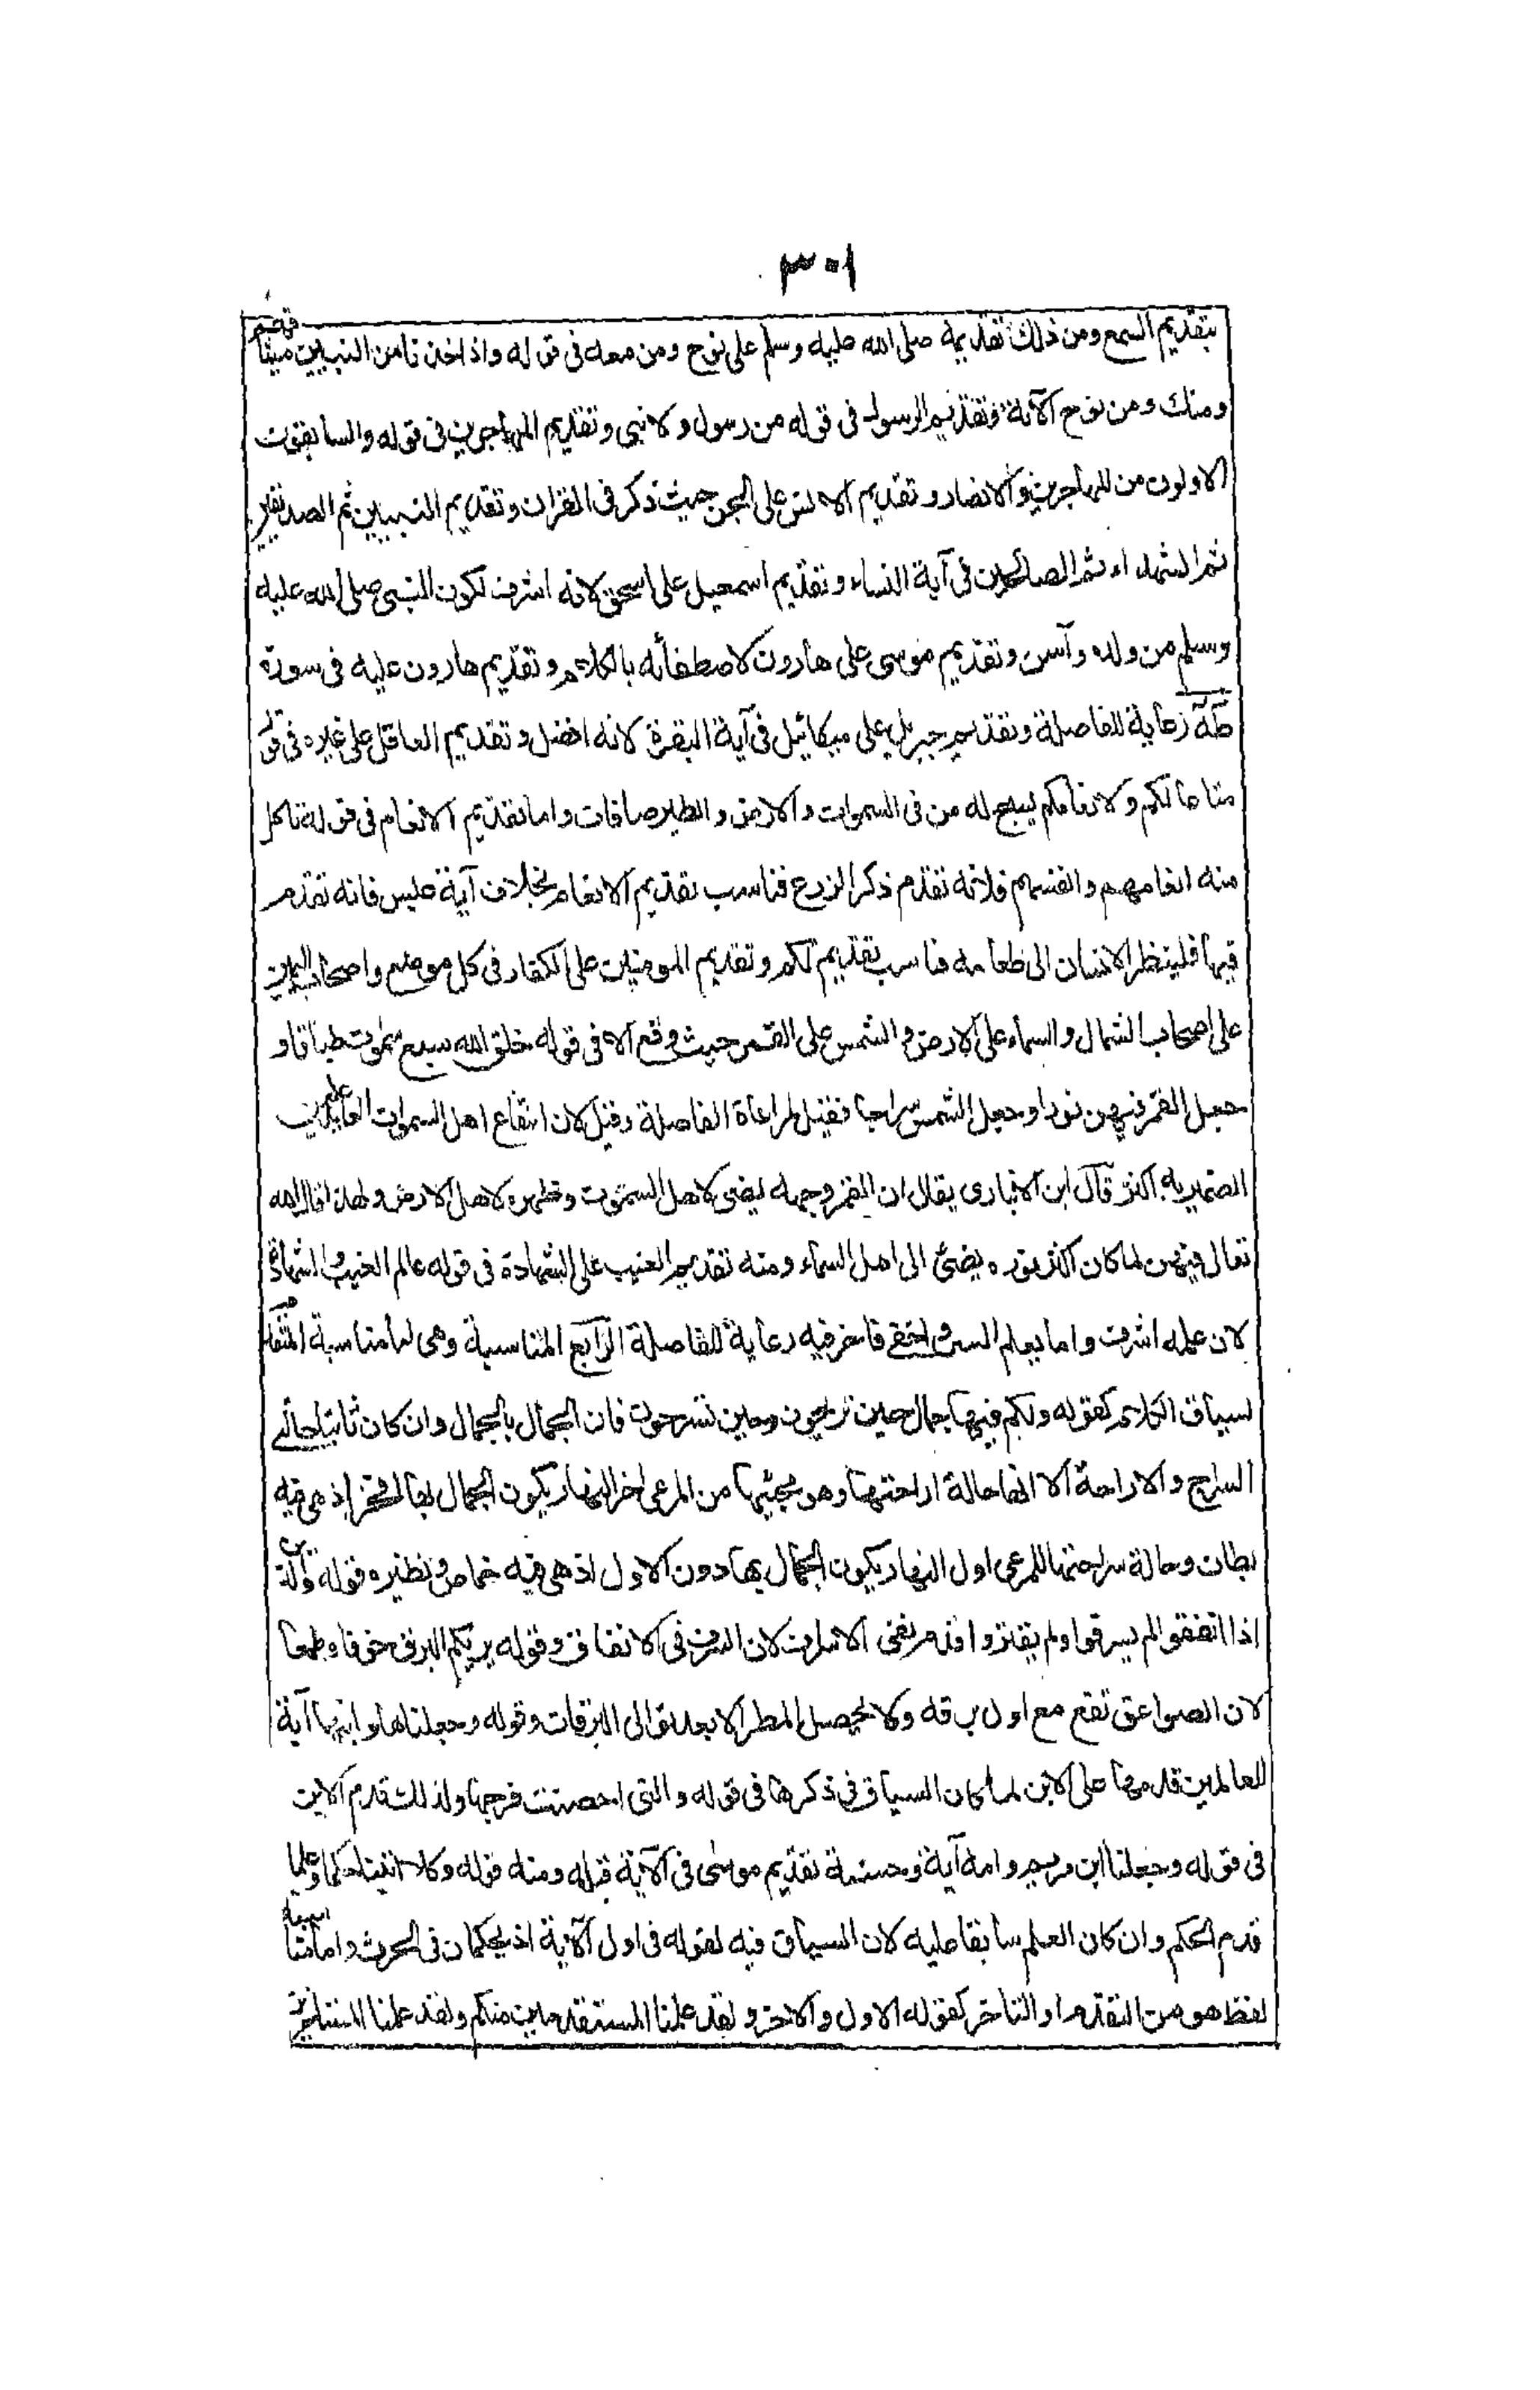 ٣٠١
بتقديم السمع ومن ذلك تقديمه صلى الله عليه وسلم على نوح ومن معه فى قوله واذ اخذنا من النبيين ميثاقهم
ومنك ومن نوح الآية وتقديم الرسول فى قوله من رسول ولا نبى وتقديم المهاجرين فى قوله والسابقون
الاولون من المهاجرين والانصار وتقديم الانس على الجن حيث ذكر فى القران وتقديم النبيين ثم الصديقين
ثم الشهداء ثم الصالحين فى آية النساء وتقديم اسمعيل على اسحق لانه اشرف لكون النبى صلى الله عليه
وسلم من ولده وآسن وتقديم موسى على هارون لاصطفائه بالكلام وتقديم هارون عليه فى سورة
طٰهٰ رعاية للفاصلة وتقديم جبريل على ميكائيل فى آية البقرة لانه افضل وتقديم العاقل على غيره فى قوله
متاعا لكم ولانعامكم يسبح له من فى السموات والارض والطير صافات واما تقديم الانعام فى قوله تاكل
منه انعامهم وانفسهم فلانه تقدم ذكر الزرع فناسب تقديم الانعام بخلاف آية عبس فانه تقدم
فيها فلينظر الانسان الى طعامه فناسب تقديم لكم وتقديم المومنين على الكفار فى كل موضع واصحاب اليمين
على اصحاب الشمال والسماء على الارض والشمس على القمر حيث وقع الا فى قوله خلق الله سبع سموت طباقا و
جعل القمر فيهن نورا وجعل الشمس سراجا فقيل لمراعاة الفاصلة وقيل لان انتفاع اهل السموات العائد عليهن
الضمير به اكثر قال ابن الانبارى يقال ان القمر وجهه يضئ لاهل السموت وظهره لاهل الارض ولهذا قال الله
تعالى فيهن لما كان اكثر نوره يضئ الى اهل السماء ومنه تقديم الغيب على الشهادة فى قوله عالم الغيب والشهادة
لان علمه اشرف واما يعلم السر واخفى فاخر فيه رعاية للفاصلة الرابع المناسبة وهى اما مناسبة المتقدم
لسياق الكلام كقوله ولكم فيها جمال حين تريحون وحين تسرحون فان الجمال بالجمال وان كان ثابتا حالتى
السراح والاراحة الا انها حالة اراحتها وهو مجيئها من المرعى اخر النهار يكون الجمال بها افخر اذ هى فيه
بطان وحالة سراحتها للمرعى اول النهار يكون الجمال بها دون الاول اذ هى فيه خماص ونظيره قوله والذين
اذا انفقوا لم يسرفوا ولم يقتروا قدم نفى الاسراف لان السرف فى الانفاق وقوله يريكم البرق خوفا وطمعا
لان الصواعق تقع مع اول برقه ولا يحصل المطر الا بعد توالى البرقات وقوله وجعلناها وابنها آية
للعالمين قدمها على الابن لما كان السياق فى ذكرها فى قوله والتى احصنت فرجها ولذلك قدم الابن
فى قوله وجعلنا ابن مريم وامه آية وحسنه تقديم موسى فى الآية قبله ومنه قوله وكلا اتينا حكما وعلما
قدم الحكم وان كان العلم سابقا عليه لان السياق فيه لقوله فى اول الآية اذ يحكمان فى الحرث واما مناسبة
لفظ هو من التقدم او التاخر كقوله الاول والاخر ولقد علمنا المستقدمين منكم ولقد علمنا المستاخرين